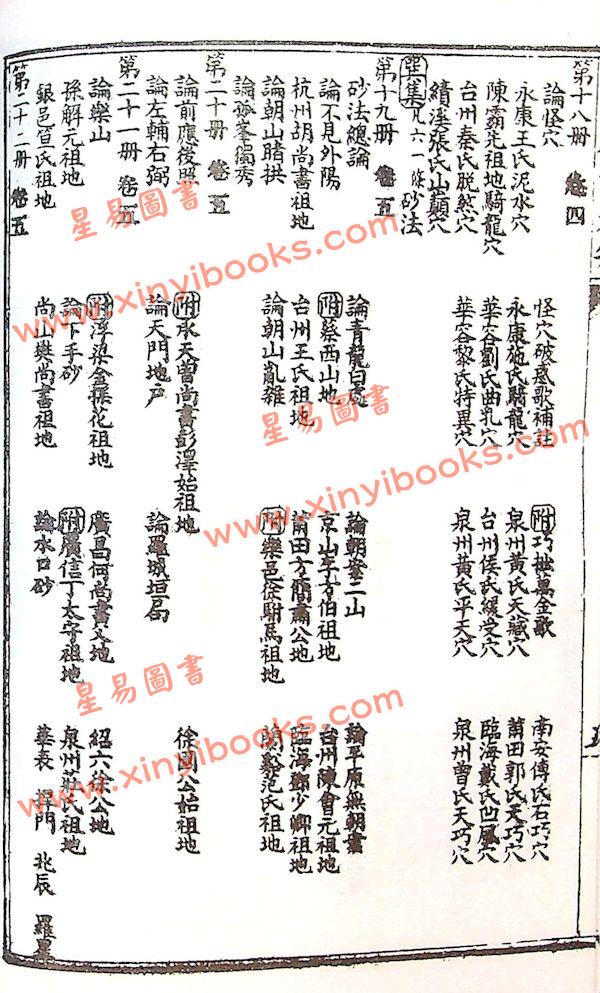 第十八册 卷四
論怪穴 怪穴破惑歌補註 附巧拙萬金歌 南安傅氏石巧穴
永康王氏泥水穴 永康施氏騎龍穴 泉州黃氏天藏穴 莆田郭氏天巧穴
陳霸先祖地騎龍穴 華容劉氏曲乳穴 台州侯氏緩受穴 臨海戴氏凹風穴
台州秦氏脱煞穴 華容黎氏特異穴 泉州黃氏平天穴 泉州曾氏天巧穴
績溪張氏山顛穴
巽集凡六一條砂法
第十九册 卷五
砂法總論 論青龍白虎 論朝案二山 論平原無朝案
論不見外陽 附蔡西山地 京山李方伯祖地 台州陳會元祖地
杭州胡尚書祖地 台州王氏祖地 莆田方簡肅公地 臨海鄧少卿祖地
論朝山暗拱 論朝山亂雜 附樂邑從駙馬祖地 蘭谿范氏祖地
論孤峯獨秀
第二十册 卷五
論前應後照 附永天曾尚書彭澤始祖地 徐國公始祖地
論左輔右弼 論天門地户 論羅城垣局
第二十一册 卷五
論樂山 附浮梁金探花祖地 廣昌何尚書父地 紹六徐公地
孫解元祖地 論下手砂 附廣信丁太守祖地 泉州莊氏祖地
銀邑宣氏祖地 尚山樊尚書祖地 論水口砂 華表 捍門 北辰 羅星
第二十二册 卷五
星易圖書
www.xinyibooks.com
星易圖書
www.xinyibooks.com
星易圖書
www.xinyibooks.com